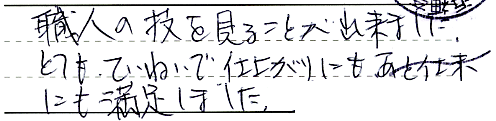 職人の技を見ることが出来ました。
とてもていねいで仕上がりにもあと仕末
にも満足しました。